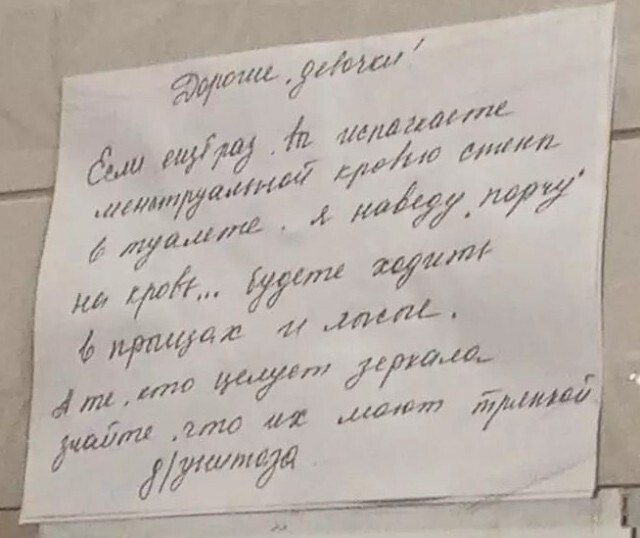 Дорогие девочки!
Если ещё раз вы испачкаете
менструальной кровью стены
в туалете, я наведу "порчу"
на кровь... будете ходить
в прыщах и лысые.
А те, кто целует зеркала
знайте, что их моют тряпкой
д/унитаза